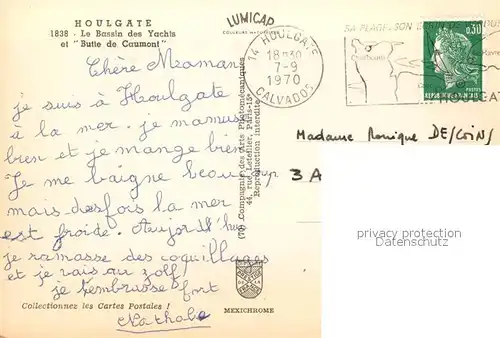 HOULGATE
1838 - Le Bassin des Yachts
et "Butte de Caumont"
LUMICAP
COULEURS NATURELLES
14 HOULGATE
18H30
7-9
1970
CALVADOS
SA PLAGE, SON
0,30
POSTES
Chère Maman
je suis à Houlgate
à la mer. je m'amuse
bien et je mange bien
Je me baigne beaucoup
mais desfois la mer
est froide. Aujourd'hui
je ramasse des coquillages
et je vais au golf
je t'embrasse fort
Nathalie
(70) Compagnie des Arts Photomécaniques
44, rue Letellier, Paris-15e
Reproduction interdite
Madame Monique DE/COINS
3 A
Collectionnez les Cartes Postales !
MEXICHROME
privates Sammlerarchiv
Datenschutz